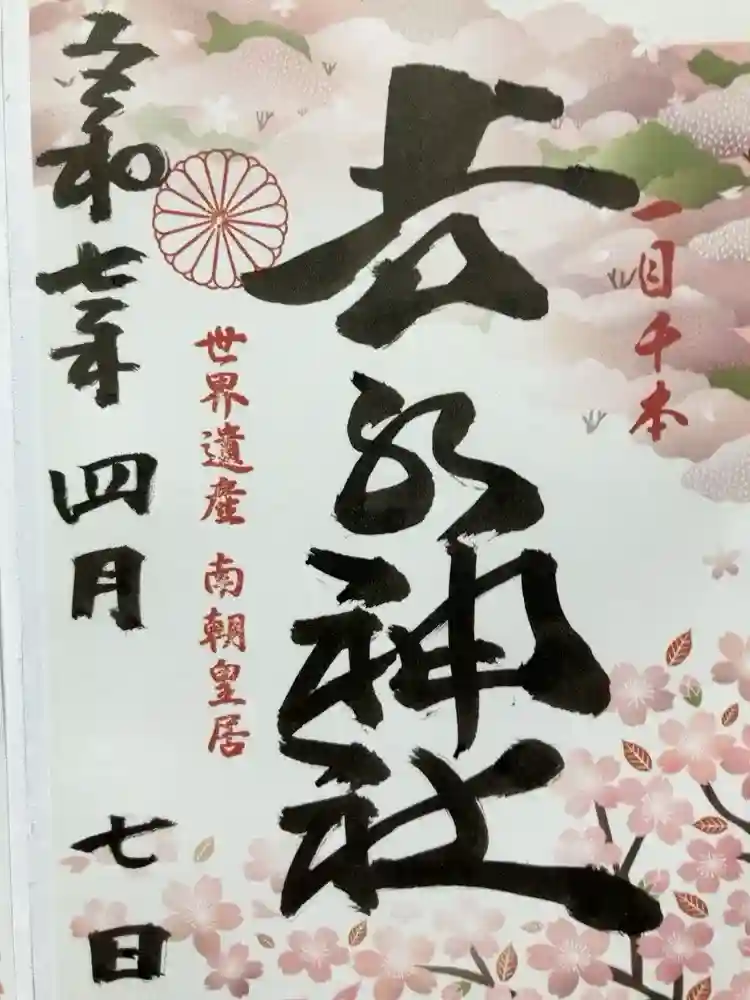 一目千本
吉水神社
世界遺産 南朝皇居
令和七年 四月 七日